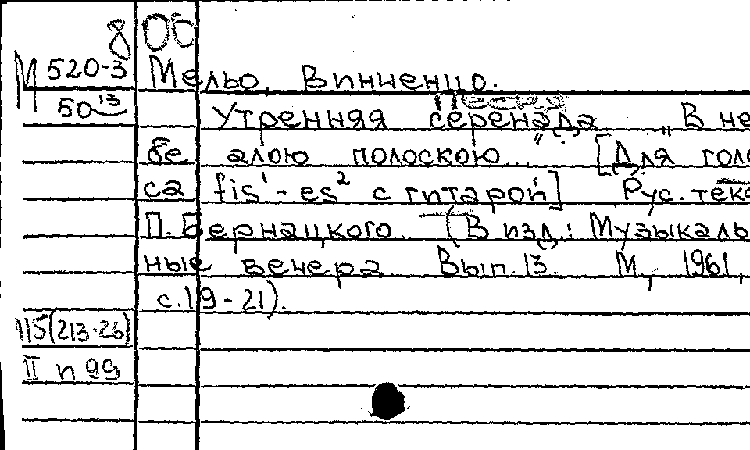 8 Об
М 520-3
50 13
Мельо, Винченцо.
Утренняя серенада „В не
бе алою полоскою..." [Для голо
са fis¹-es² с гитарой] Рус. текс
П. Бернацкого. (В изд.: Музыкаль
ные вечера. Вып. 13. М., 1961,
с. 19-21).
115(213-26)
II п 99